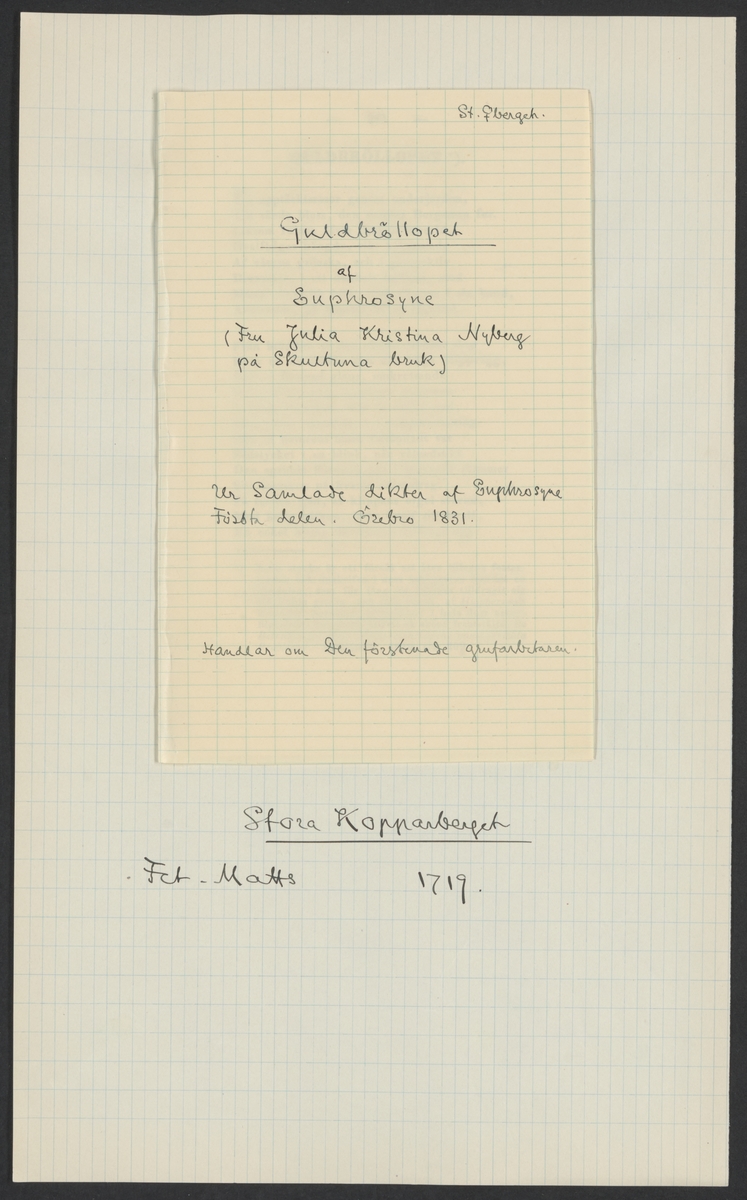 St. Cbergeh.
Guldbröllopet
af
Euphrosyne
(Fru Julia Kristina Nyberg
på Skultuna bruk)
Ur Samlade dikter af Euphrosyne
Första delen. Örebro 1831.
Handlar om Den förstenade grufarbetaren.
Stora Kopparberget
Fet-Matts 1719.